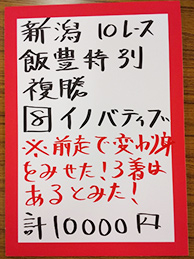 新潟 10レース
飯豊特別
複勝
8 イノバティブ
※前走で変わり身
をみせた!3着は
あるとみた!
計10000円